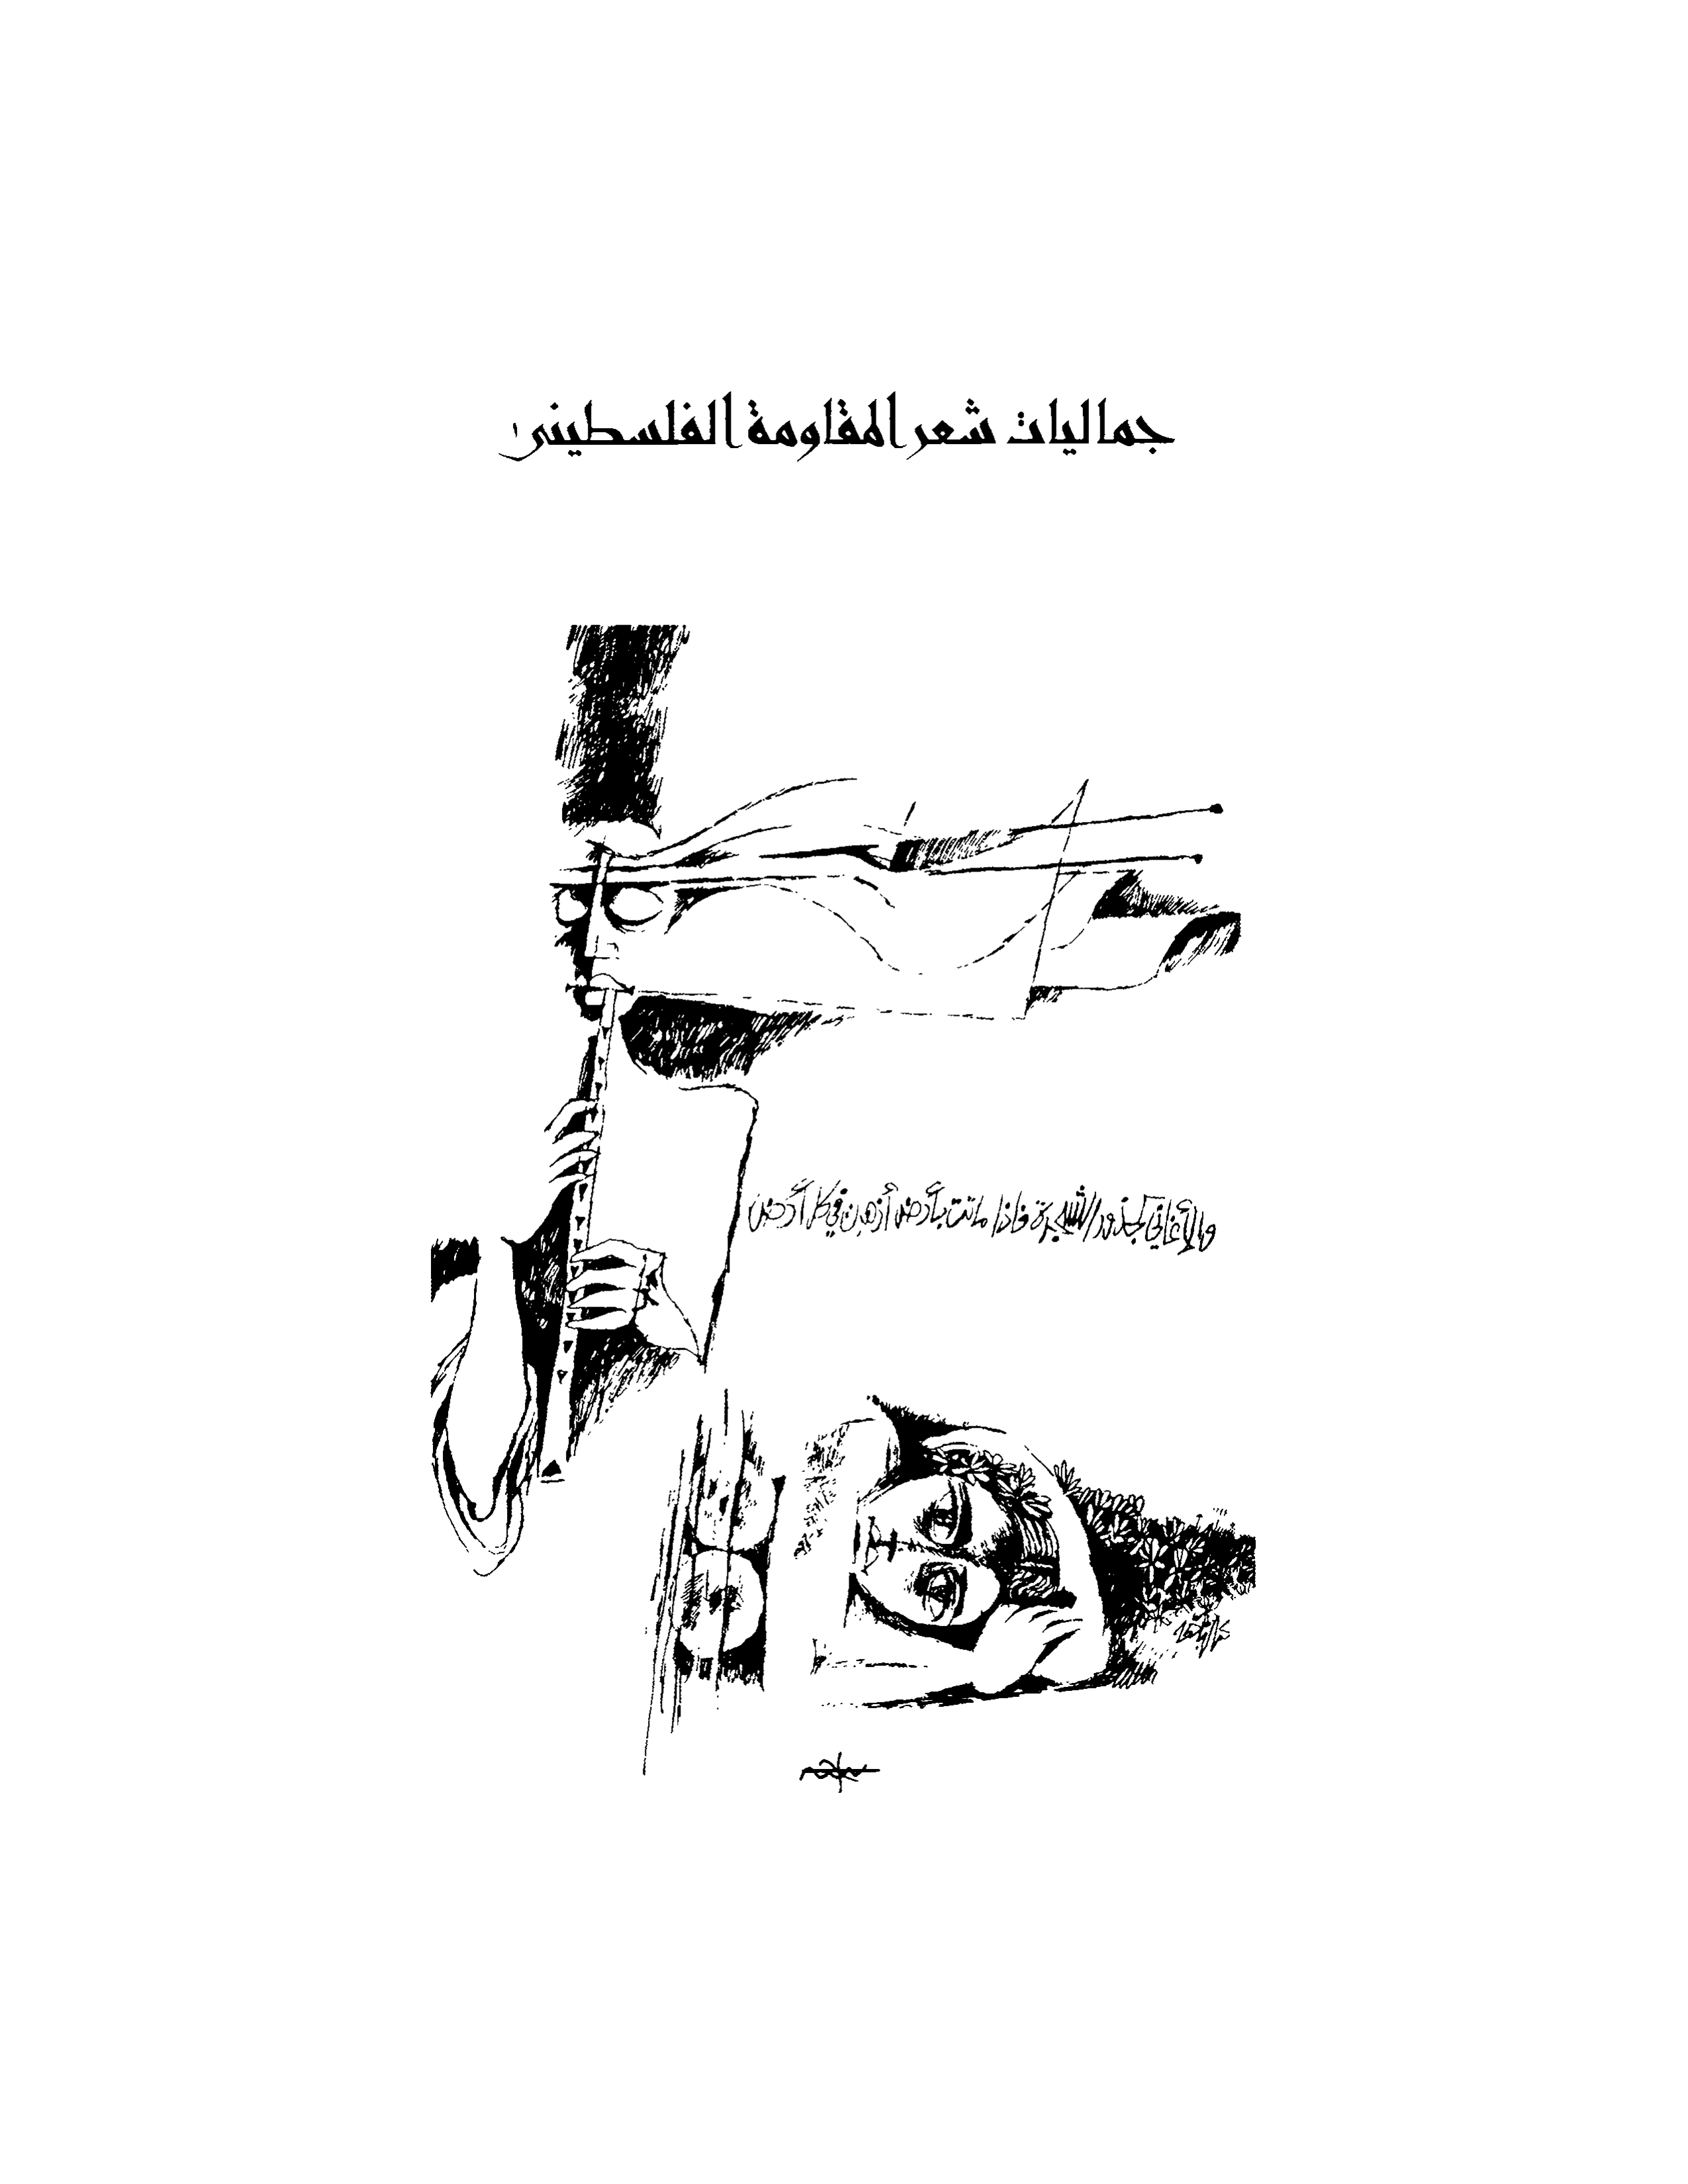 جماليات شعر المقاومة الفلسطينى
والأغاني كجذور الشجرة فاذا ماتت بأرض أزهرن في كل أرض